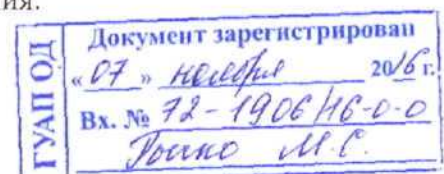 ия.
ГУАП ОД
Документ зарегистрирован
«07» ноября 2016 г.
Вх. № 72-1906/16-0-0
М.С.